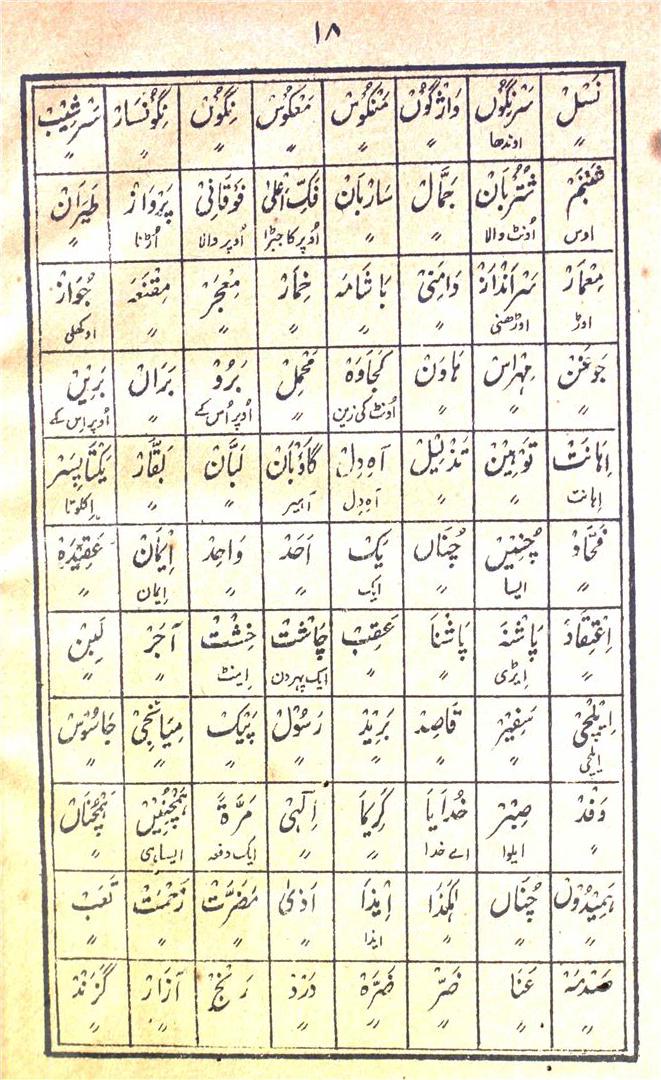 ۱۸
نَسل سَرنِگُوں وَاژگُوں مَنکُوس مَعکُوس نِگُوں نِگُونسَار سَرشیِب
〃 اوندھا 〃 〃 〃 〃 〃 〃
شَبنَم شُتُربَان جَمَّال سَاربَان فَکِّ اَعْلیٰ فَوقَانِی پَروَاز طَیرَان
اوس اُونٹ والا 〃 〃 اُوپر کا جبڑا اُوپر والا اُڑنا 〃
مِعمَار سَراَندَاز دَامَنِی بَاشَامَہ خِمَار مِعجَر مِقنَعَہ جُوَاز
اوڑ اوڑھنی 〃 〃 〃 〃 〃 اوکھلی
جَوغَن مِہرَاس ہَاوَن کَجَاوَہ مَحمِل بَرُو بَراں بَرِیں
〃 〃 〃 اُونٹ کی زین 〃 اُوپر اُس کے 〃 اُوپر اِس کے
اِہَانَت تَوہِین تَذلِیل آہ دِل گاؤبَان لَبَّان بَقَّار یَکتَا پِسَر
اہانت 〃 〃 آہِ دل اہیر 〃 〃 اِکلوتا
چُنِیں چُنَاں یَک اَحَد وَاحِد اِیمَان عَقِیدَہ
〃 ایسا 〃 ایک 〃 〃 ایمان 〃
اِعتِقَاد پَاشنَہ پَاشنَا عَقِب چَاشت خِشت آجَر لَبِن
〃 ایڑی 〃 〃 ایک پہر دن اینٹ 〃 〃
اِیلچِی سَفِیر قَاصِد بَرِید رَسُول پَیک مِیَانجِی جَاسُوس
ایلچی 〃 〃 〃 〃 〃 〃 〃
وَفد صِبر خُدَایَا کَرِیمَا اِلٰہِی مَرَّۃ ہَمچُنِیں ہَمچُنَاں
〃 ایلوا اے خدا 〃 〃 ایک دفعہ ایسا ہی 〃
ہَمِیدُوں چُنَاں اِیذَا اَذیٰ مَضَرَّت زَحمَت تَعَب
〃 〃 〃 ایذا 〃 〃 〃 〃
صَدمَہ عَنَا ضَرّ ضَرَہ دَرد رَنج آزَار گَزَند
〃 〃 〃 〃 〃 〃 〃 〃